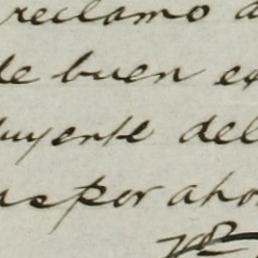 reclamo a
de buen ex
buyente del
as por aho